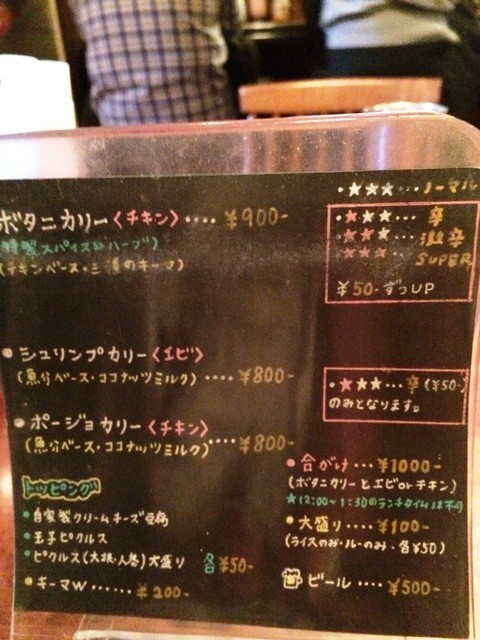 ボタニカリー〈チキン〉‥‥ ¥900-
特製スパイス&ハーブ)
(チキンベース・三種のキーマ)
シュリンプカリー〈エビ〉
(魚介ベース・ココナッツミルク)‥‥ ¥800-
ポージョカリー〈チキン〉
(魚介ベース・ココナッツミルク)‥‥ ¥800-
トッピング
自家製クリームチーズ豆腐
玉子ピクルス
ピクルス(大根・人参)大盛り 各¥50-
キーマW‥‥‥ ¥200-
・★★★‥・ノーマル
・★★★‥・辛
★★★‥・激辛
★★★‥・SUPER
¥50-ずつUP
・★★★‥・辛(¥50-)
のみとなります。
合がけ‥・¥1000-
(ボタニカリーとエビorチキン)
★12:00~1:30のランチタイムは不可
大盛り‥‥¥100-
(ライスのみ・ルーのみ・各¥50)
ビール‥‥¥500-